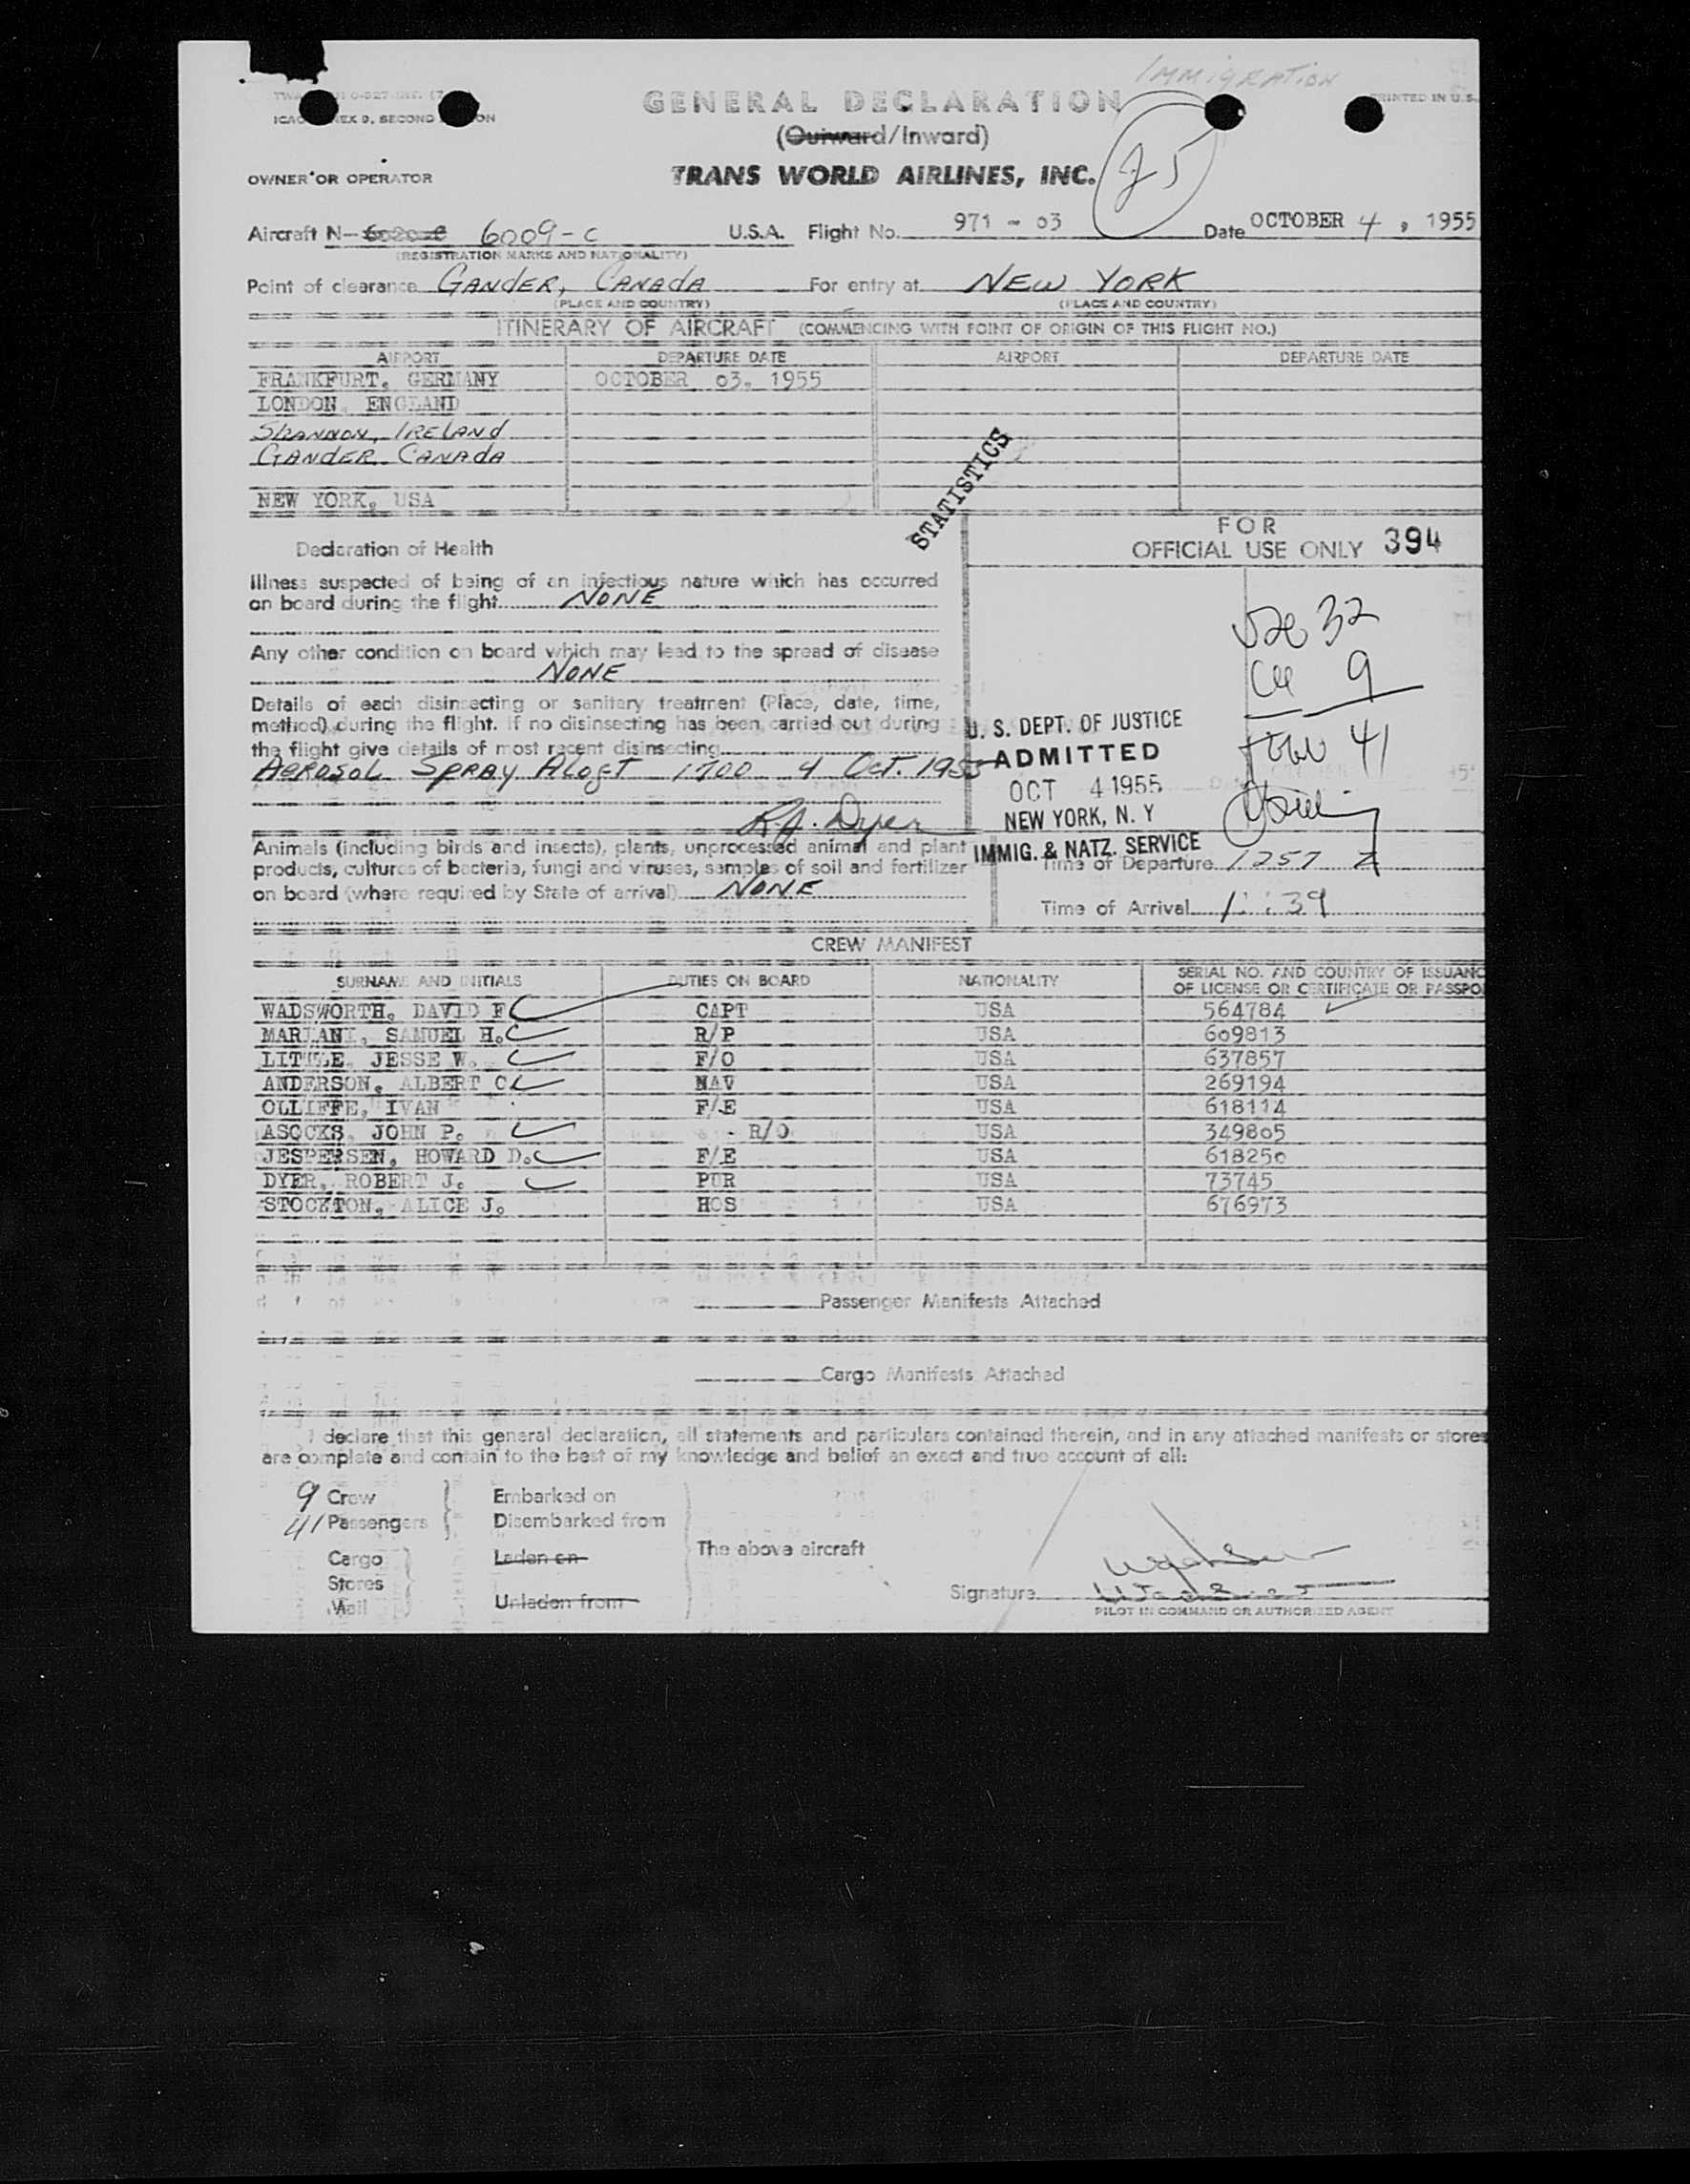 IMMIGRATION
GENERAL DECLARATION
PRINTED IN U.S.
(Outward/Inward)
OWNER OR OPERATOR
TRANS WORLD AIRLINES, INC.
Aircraft N- 6009-C U.S.A. Flight No. 971 - 03 Date OCTOBER 4, 1955
(REGISTRATION MARKS AND NATIONALITY)
Point of clearance GANDER, CANADA For entry at NEW YORK
(PLACE AND COUNTRY) (PLACE AND COUNTRY)
ITINERARY OF AIRCRAFT (COMMENCING WITH POINT OF ORIGIN OF THIS FLIGHT NO.)
AIRPORT DEPARTURE DATE AIRPORT DEPARTURE DATE
FRANKFURT, GERMANY OCTOBER 03, 1955
LONDON, ENGLAND
SHANNON, IRELAND
GANDER CANADA
NEW YORK, USA
STATISTICS
FOR
OFFICIAL USE ONLY 394
Declaration of Health
Illness suspected of being of an infectious nature which has occurred
on board during the flight NONE
Any other condition on board which may lead to the spread of disease
NONE
Details of each disinsecting or sanitary treatment (Place, date, time,
method) during the flight. If no disinsecting has been carried out during
the flight give details of most recent disinsecting
AEROSOL SPRAY ALOFT 1700 4 OCT. 1955
R.J. Dyer
32
9
41
U. S. DEPT. OF JUSTICE
ADMITTED
OCT 4 1955
NEW YORK, N. Y
IMMIG. & NATZ. SERVICE
Animals (including birds and insects), plants, unprocessed animal and plant
products, cultures of bacteria, fungi and viruses, samples of soil and fertilizer
on board (where required by State of arrival) NONE
Time of Departure 1257 Z
Time of Arrival
CREW MANIFEST
SURNAME AND INITIALS DUTIES ON BOARD NATIONALITY SERIAL NO. AND COUNTRY OF ISSUANC
OF LICENSE OR CERTIFICATE OR PASSPO
WADSWORTH, DAVID F CAPT USA 564784
MARIANI, SAMUEL H. R/P USA 609813
LITTLE, JESSE W. F/O USA 637857
ANDERSON, ALBERT C. NAV USA 269194
OLLIFFE, IVAN F/E USA 618114
ASOCKS, JOHN P. R/O USA 349805
JESPERSEN, HOWARD D. F/E USA 618250
DYER, ROBERT J. PUR USA 73745
STOCKTON, ALICE J. HOS USA 676973
Passenger Manifests Attached
Cargo Manifests Attached
I declare that this general declaration, all statements and particulars contained therein, and in any attached manifests or stores
are complete and contain to the best of my knowledge and belief an exact and true account of all:
9 Crew Embarked on
41 Passengers Disembarked from
The above aircraft
Cargo Laden on
Stores
Mail Unladen from
Signature
PILOT IN COMMAND OR AUTHORIZED AGENT